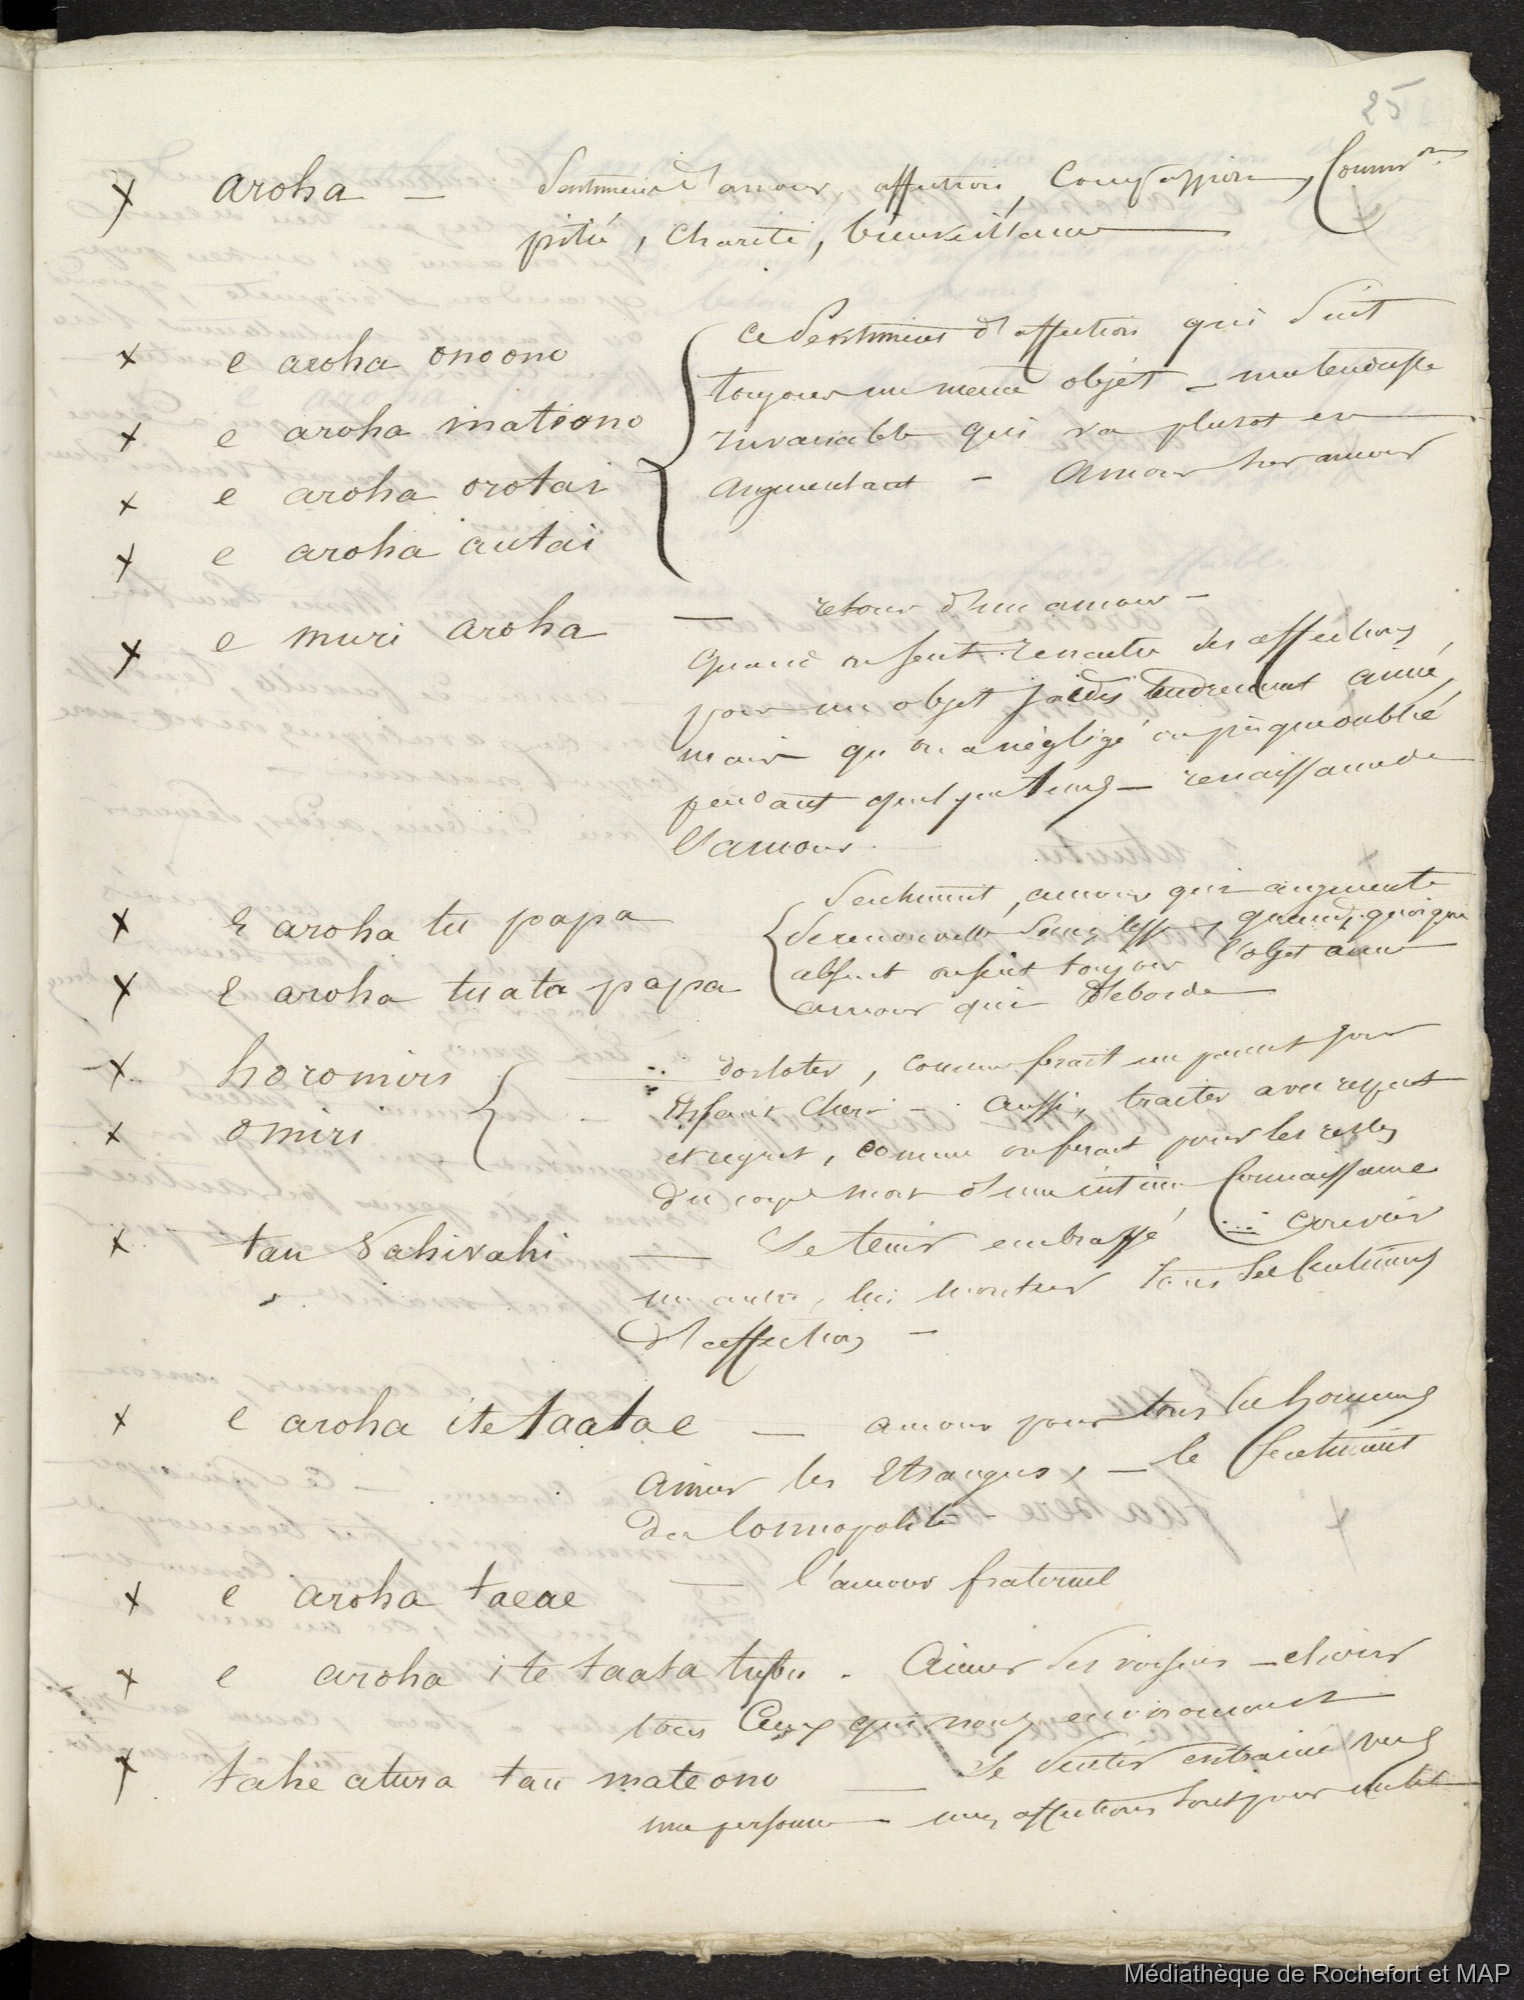 25
aroha — Sentiment d'amour, affection, Compassion,
pitié, charité, bienveillance
e aroha onoono
e aroha mationo
e aroha orotai
e aroha autai
ce Sentiment d'affection qui suit
toujours un meme objet –
invariable qui va plutot en
augmentant – amour sur amour
e muri aroha — retour d'un amour –
quand on sent renaitre des affections
pour un objet jadis tendrement aimé,
mais qu'on a négligé ou presque oublié
pendant quelque temps – renaissance de
l'amour
E aroha tu papa
E aroha tuata papa
Sentiment, amour qui augmente
se renouvelle sans cesse, quand, quoique
absent on sent toujours l'objet aimé
amour qui deborde
horomiri
omiri
– dorloter, comme ferait un parent pour
enfant cheri – aussi, traiter avec respect
et regret, comme on ferait pour les restes
du corps mort d'une intime Connaissance
tau vahivahi — Se tenir embrassé,
un autre, lui montrer tous ses sentiments
d'affection –
e aroha ite taatae — amour pour tous les hommes
aimer les Etrangers, – le sentiment
du Cosmopolite –
e aroha taeae — l'amour fraternel
e aroha ite taata tupu - Aimer ses voisins – cherir
tous Ceux qui nous environnent
tahe atura tau mateono — Se sentir entrainé vers
une personne – mes affections sont pour
Médiathèque de Rochefort et MAP